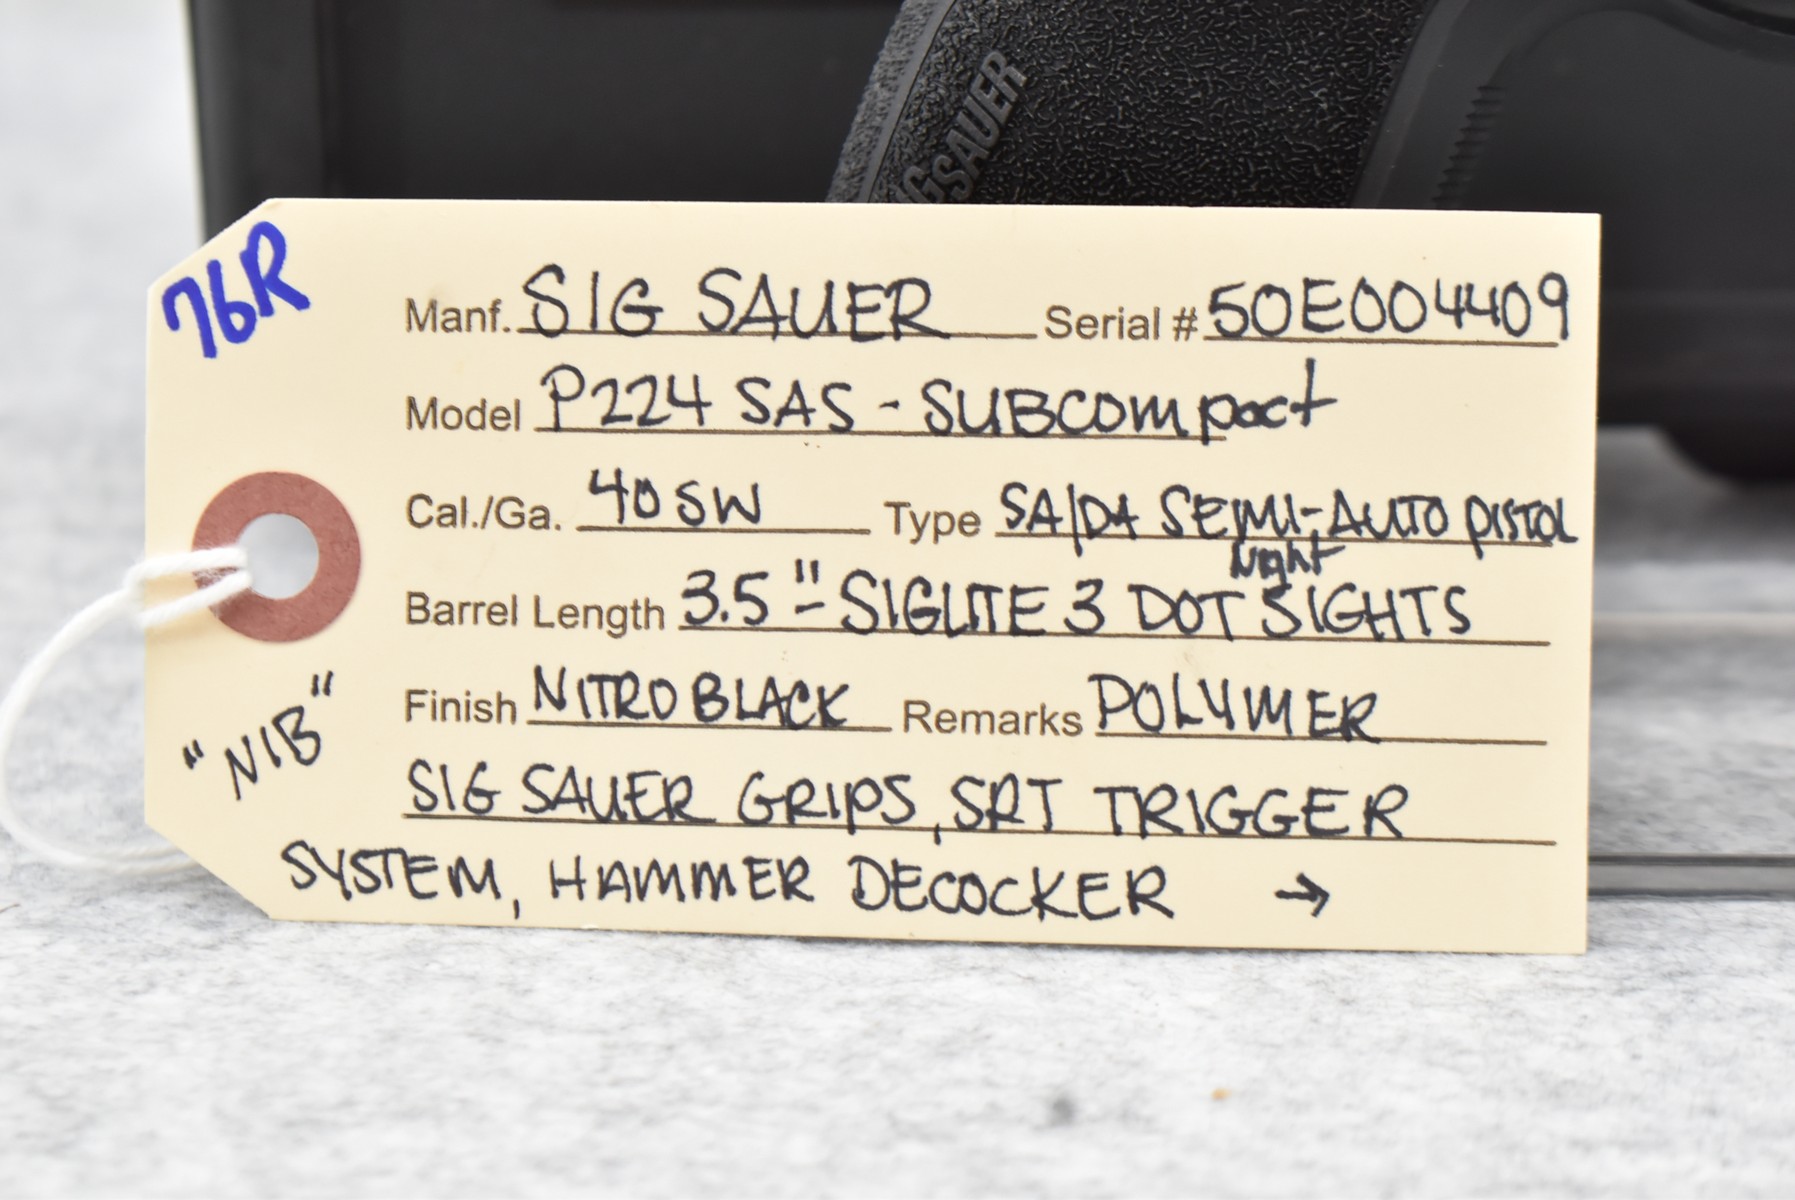 SIGSAUER
76R
Manf. SIG SAUER Serial # 50E004409
Model P224 SAS - SUBCOMpact
Cal./Ga. 40 SW Type SA/DA SEMI-AUTO PISTOL
Night
Barrel Length 3.5" - SIGLITE 3 DOT SIGHTS
Finish NITRO BLACK Remarks POLYMER
"NIB"
SIG SAUER GRIPS, SRT TRIGGER
SYSTEM, HAMMER DECOCKER →